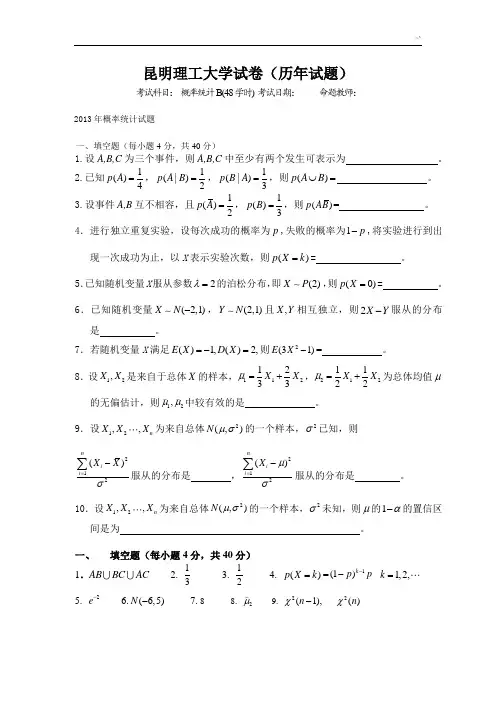 昆明理工大学试卷（历年试题）
考试科目： 概率统计B(48学时) 考试日期： 命题教师：
2013年概率统计试题
一、填空题（每小题4分，共40分）
1.设A,B,C为三个事件，则A,B,C中至少有两个发生可表示为 。
2.已知p(A)=1/4，p(A|B)=1/2，p(B|A)=1/3，则p(A∪B)= 。
3.设事件A,B互不相容，且p(A̅)=1/2，p(B)=1/3，则p(AB̅)= 。
4．进行独立重复实验，设每次成功的概率为p,失败的概率为1−p,将实验进行到出
现一次成功为止，以X表示实验次数，则p(X=k)= 。
5.已知随机变量X服从参数λ=2的泊松分布,即X~P(2),则p(X=0)= 。
6．已知随机变量X~N(−2,1)，Y~N(2,1)且X,Y相互独立，则2X−Y服从的分布
是 。
7．若随机变量X满足E(X)=−1,D(X)=2,则E(3X²−1)= 。
8．设X₁,X₂是来自于总体X的样本,μ̂₁=1/3X₁+2/3X₂，μ̂₂=1/2X₁+1/2X₂为总体均值μ
的无偏估计，则μ̂₁,μ̂₂中较有效的是 。
9．设X₁,X₂⋯,Xₙ为来自总体N(μ,σ²)的一个样本，σ²已知，则
∑ᵢ₌₁ⁿ(Xᵢ−X̅)²/σ²服从的分布是 ，∑ᵢ₌₁ⁿ(Xᵢ−μ)²/σ²服从的分布是 。
10．设X₁,X₂⋯,Xₙ为来自总体N(μ,σ²)的一个样本，σ²未知，则μ的1−α的置信区
间是为 。
一、 填空题（每小题4分，共40分）
1．AB∪BC∪AC 2. 1/3 3. 1/2 4. p(X=k)=(1−p)ᵏ⁻¹p k=1,2,⋯
5. e⁻² 6.N(−6,5) 7.8 8. μ̂₂ 9. χ²(n−1), χ²(n)